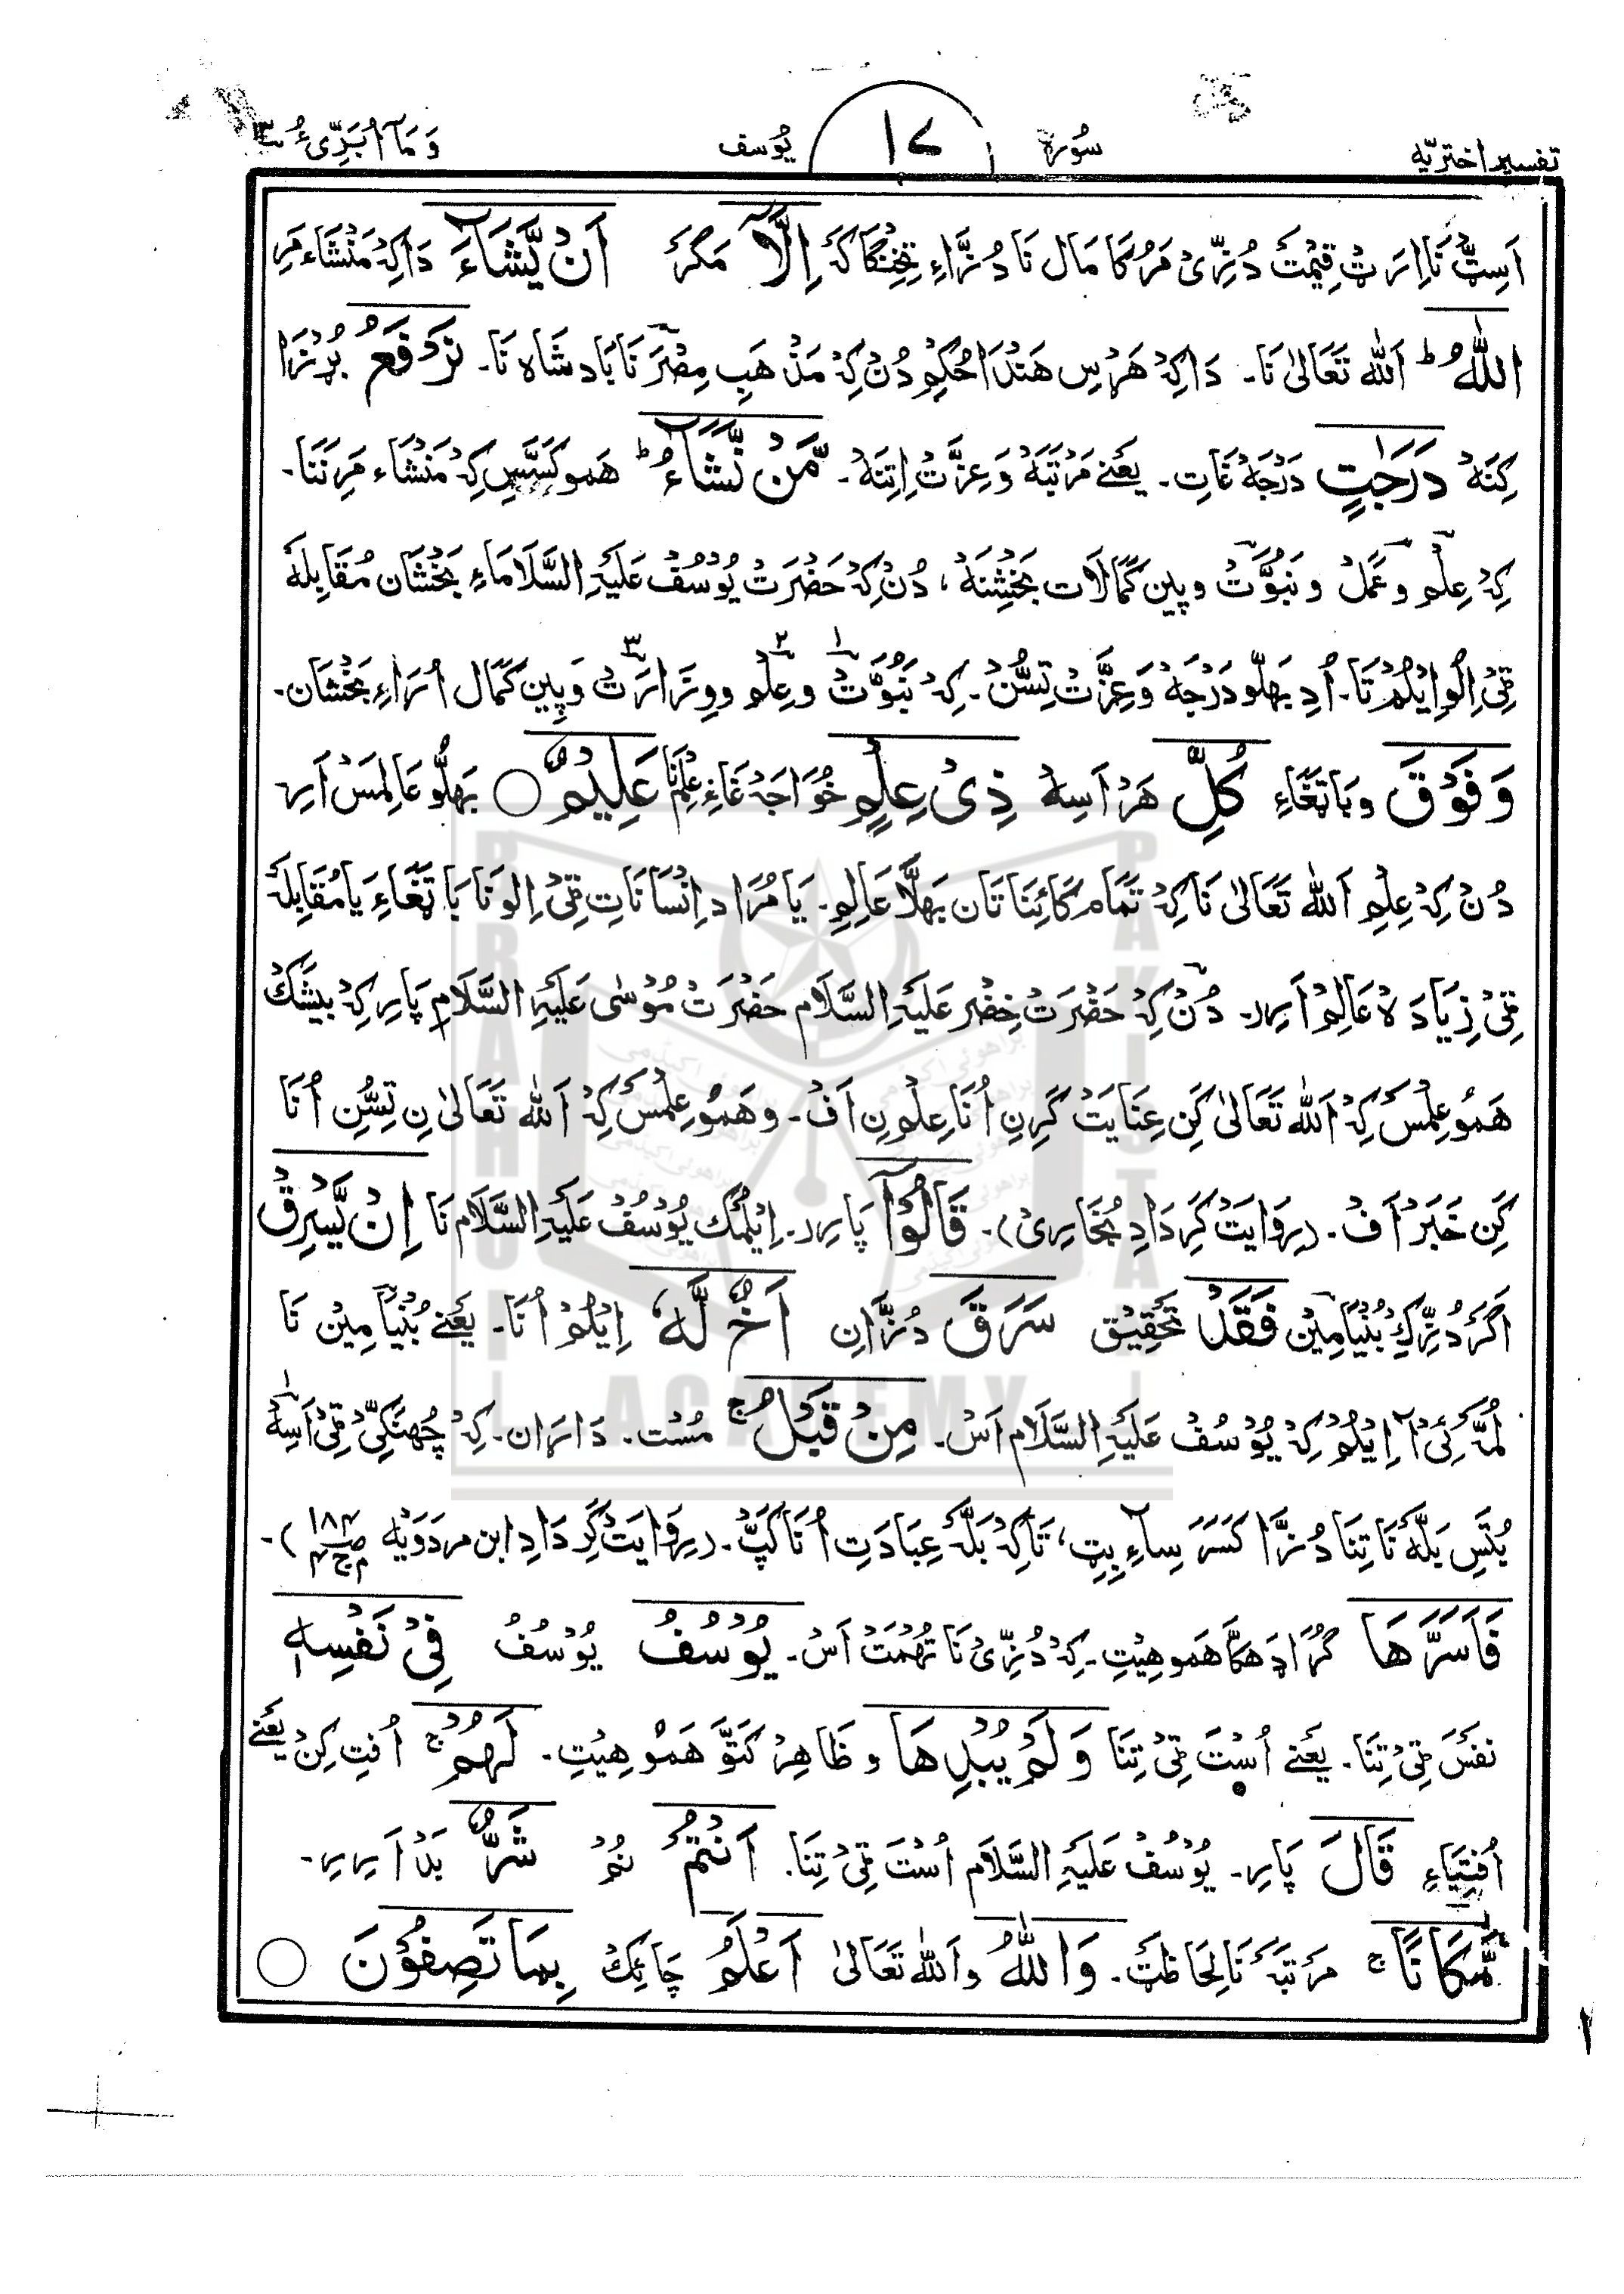 تفسیر اختریّه سُورة ١٧ یُوسف وَمَآ اُبَرِّئُ ١٣
اَسِٹ نَا اِرَٹ قِیْمَتَ دُزِّیْ مَرُکَا مَال نَا دُزَّاءِ تِخِنْگَا کَہ اِلَّآ مَگَرَ اَنْ یَّشَآءَ دَاکِہْ مَنْشَاء مَرِ
اللّٰهُ ؕ اَللّٰه تَعَالٰی نَا۔ دَاکِہْ هَرْسِ هَنْدَا حُکِمْ دُنْ کِہْ مَذْهَبِ مِصْرَ نَا بَادشَاه نَا۔ نَرْفَعُ بُرْزَا
کِنَهْ دَرَجٰتٍ دَرْجَهْ غَاتِ۔ یَعْنے مَرْتَبَهْ وَ عِزَّتْ اِتِنَهْ۔ مَّنْ نَّشَآءُ ؕ هَمو کَسَّسِ کِہْ مَنْشَاء مَرِ نَنَا۔
کِہْ عِلْم و عَمَلْ و نَبُوَّتْ و پِین کَمَالَات بَخْشِنَهْ، دُنْ کِہْ حَضْرَتْ یُوْسُفْ عَلَیْہِ السَّلَامَاءِ بَخْشَان مُقَابِلَهْ
ٹِیْ اِلُو اِیلُمْ تَا۔ اُدِ بَهلّو دَرْجَهْ وَ عِزَّتْ تِسُّنْ۔ کِہْ نَبُوَّتْ و عِلْم و وِزَارَتْ وَ پِین کَمَال اُرَاءِ بَخْشَان۔
وَفَوْقَ و بَا تِغَاءِ کُلِّ هَرْ اَسِهْ ذِیْ عِلْمٍ خُوَاجَهْ غَاءِ عِلْمْ نَا عَلِیْمٌ ○ بَهلُّو عَالِمَسْ اَرِ
دُنْ کِہْ عِلِمْ اَللّٰه تَعَالٰی نَا کِہْ تَمَام کَائِنَاتَان بَهلَّا عَالِمِ۔ یَا مُرَاد اِنْسَانَاتِ ٹِیْ اِلو نَا بَا تِغَاءِ یَا مُقَابِلَهْ
ٹِیْ زِیَادَہ عَالِمْ اَرِر۔ دُنْ کِہْ حَضْرَتْ خِضْر عَلَیْہِ السَّلَام حَضْرَتْ مُوْسٰی عَلَیْہِ السَّلَام پَارِ کِہْ بیشَکْ
هَمُو عِلْمَسْ کِہْ اَللّٰه تَعَالٰی کَنِ عِنَایَتْ کَرِنِ اُنَا عِلْم نِ اَفْ۔ و هَمُو عِلْمَسْ کِہْ اَللّٰه تَعَالٰی نِ تِسُّنِ اُنَا
کَنِ خَبَرْ اَفْ۔ (رِوَایَتْ کَرِ دَادِ بُخَارِیْ)۔ قَالُوْآ پَارِر۔ اِیْلُمْک یُوْسُفْ عَلَیْہِ السَّلَام نَا اِنْ یَّسْرِقْ
اَگَرْ دُزِّکِ بُنْیَامِیْن فَقَدْ تَحْقِیْق سَرَقَ دُزَّانِ اَخٌ لَّهٗ اِیْلُمْ اُنَا۔ یَعْنے بُنْیَامِیْن نَا
لُمَّہ ئِیْ آ اِیْلُمْ کِہْ یُوْسُفْ عَلَیْہِ السَّلَام اَسْ۔ مِنْ قَبْلُ ۚ مُسْت۔ دَارَان۔ کِہْ چُهنَکِّیْ ٹِیْ اَسِهْ
بُتَّسِ بَلَّهْ نَا تِنَا دُزَّا کَسَرَ سِاءِ بِتِ، تَاکِہْ بَلَّهْ عِبَادَتِ اُنَا کَپّ۔ (رِوَایَتْ کَرِ دَادِ ابن مردَوَیْه ص١٨٣ ج٤)۔
فَاَسَرَّهَا گُڑَا دَهکَّا هَمو هِیْتِ۔ کِہْ دُزِّیْ نَا تُهْمَتْ اَسْ۔ یُوْسُفُ یُوْسُفْ فِیْ نَفْسِهٖ
نَفْسَ ٹِیْ تِنَا۔ یَعْنے اُسْتَ ٹِیْ تِنَا وَلَمْ یُبْدِهَا و ظَاهِرْ کَتَوَّ هَمُو هِیْتِ۔ لَهُمْ ۚ اُفتِ کِنْ یَعْنے
اُفْتِیَاءِ قَالَ پَارِ۔ یُوْسُفْ عَلَیْہِ السَّلَام اُسْتَ ٹِیْ تِنَا۔ اَنْتُمْ نُمْ شَرٌّ بَدْ اَرِرِ۔
مَّکَانًا ۚ مَرْتَبَهْ نَا لِحَاظَتْ۔ وَاللّٰهُ و اَللّٰه تَعَالٰی اَعْلَمُ چَائِکْ بِمَا تَصِفُوْنَ ○
BRAHUI ACADEMY PAKISTAN
براهوئی اکیڈمی